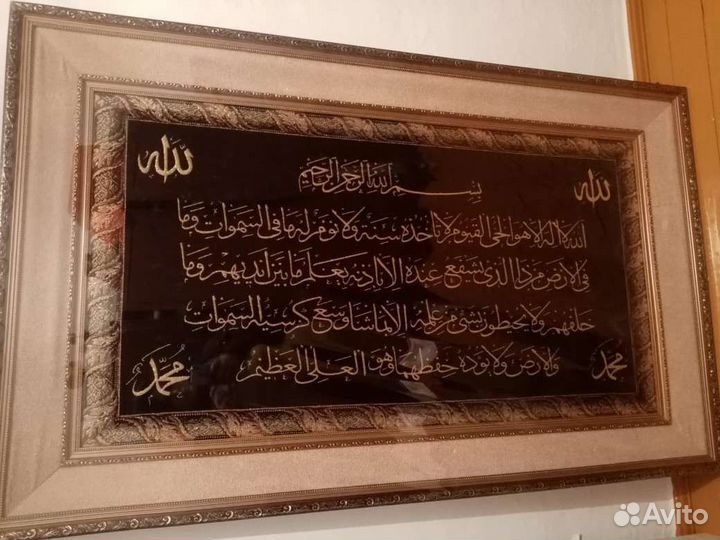 الله
بسم الله الرحمن الرحيم
الله
الله لا اله الا هو الحي القيوم لا تأخذه سنة ولا نوم له ما في السموات وما
في الارض من ذا الذي يشفع عنده الا باذنه يعلم ما بين ايديهم وما
خلفهم ولا يحيطون بشيء من علمه الا بما شاء وسع كرسيه السموات
والارض ولا يؤده حفظهما وهو العلي العظيم
محمد
محمد
Avito